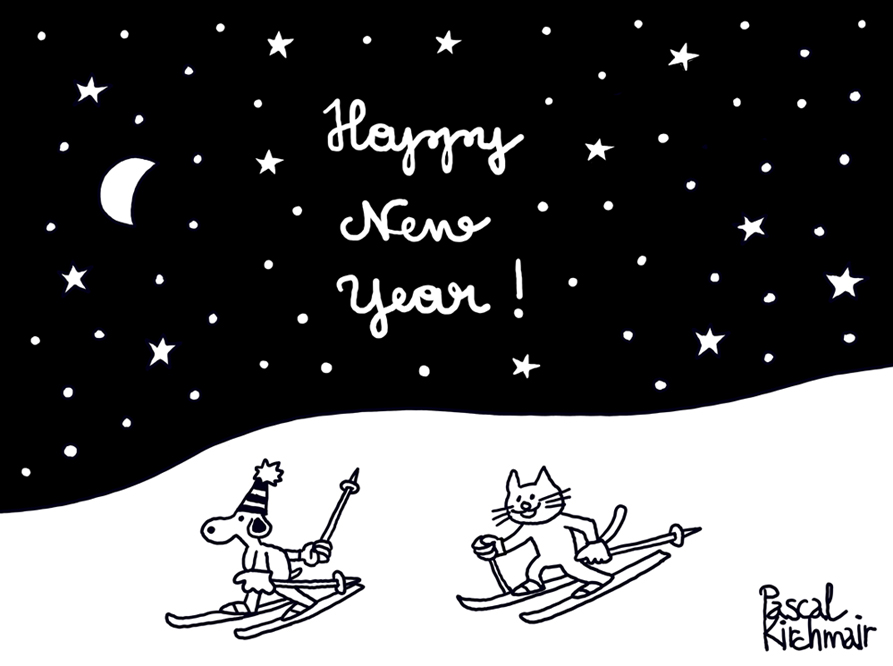 Happy
New
Year!
Pascal
Kirchmair